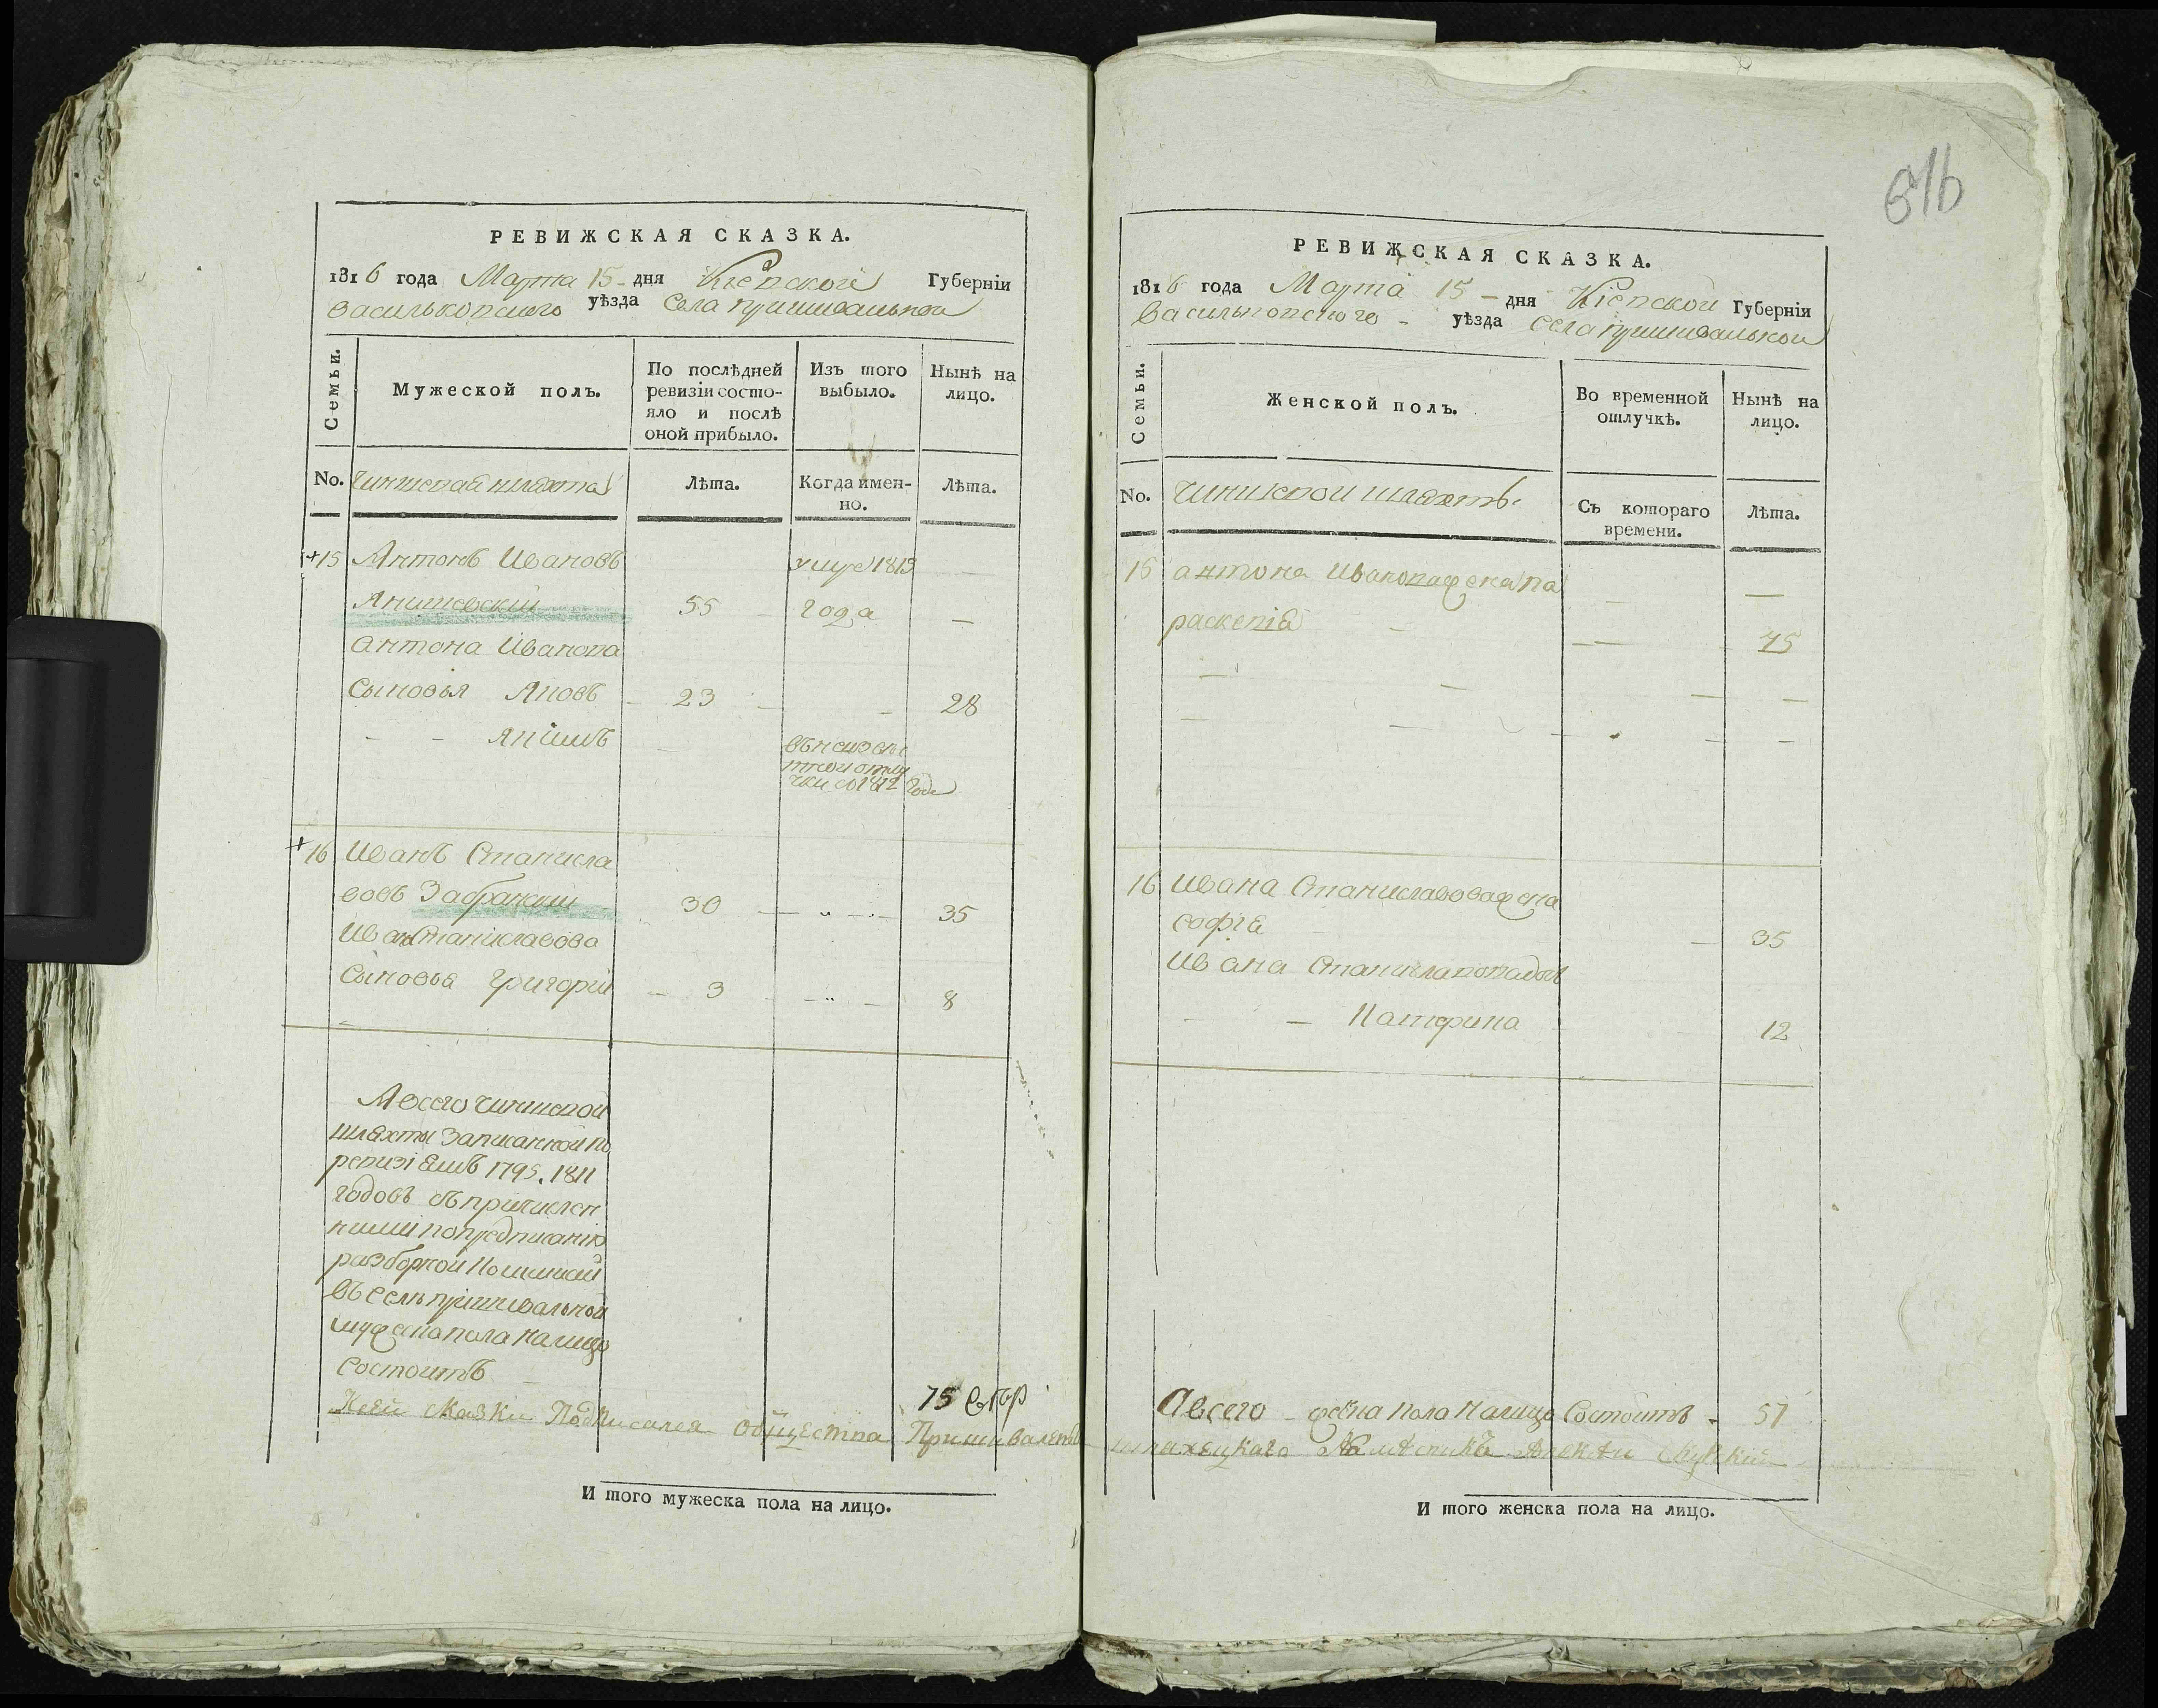 РЕВИЖСКАЯ СКАЗКА.
1816 года Марта 15 - дня Кіевской Губерніи
Васильковского уѣзда Села пришивальной
Семьи.
Мужеской полъ.
По послѣдней ревизіи состояло и послѣ оной прибыло.
Изъ того выбыло.
Нынѣ на лицо.
No.
Чиншевая шляхта
Лѣта.
Когда именно.
Лѣта.
+15 Антонъ Ивановъ умре 1813 —
55 года —
Антона Иванова
Сыновья 23 — 28
+16 Иванъ Станисла
вовъ Забранский 30 — 35
Ивана Станиславова
Сыновья Григорій — 3 — 8
А всего чиншевой
шляхты Записанной по
ревизіямъ 1795. 1811
годовъ съ причислен
ными по предписанію
разборной Комиссии
въ селе пришивальной
мужеска пола налицо
состоитъ
75
Сей сказки Подписался общества
И того мужеска пола на лицо.
816
РЕВИЖСКАЯ СКАЗКА.
1816 года Марта 15 — дня Кіевской Губерніи
Васильковского - уѣзда села пришивальной
Семьи.
Женской полъ.
Во временной отлучкѣ.
Нынѣ на лицо.
No.
Чиншевой шляхты.
Съ котораго времени.
Лѣта.
15 антона Иванова жена па
раскевія —
16 Ивана Станиславова жена
софія — 35
Ивана Станиславова дочь
— — Катерина 12
Авсего - женска пола налицо Состоитъ - 57
И того женска пола на лицо.